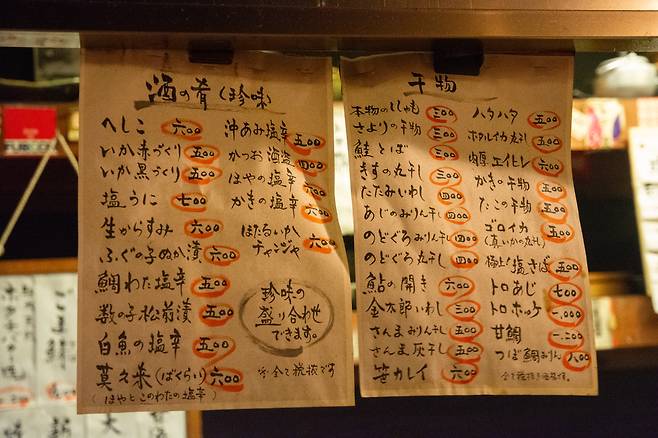 酒の肴(珍味)
へしこ 六〇〇
いか赤づくり 五〇〇
いか黒づくり 五〇〇
塩うに 七〇〇
生からすみ 六〇〇
ふぐの子ぬか漬 六〇〇
鯛わた塩辛 五〇〇
数の子松前漬 五〇〇
白魚の塩辛 五〇〇
莫久来(ばくらい) 六〇〇
(ほやとこのわたの塩辛)
沖あみ塩辛 五〇〇
かつお酒盗 四〇〇
ほやの塩辛 五〇〇
かきの塩辛 六〇〇
ほたるいか
チャンジャ 六〇〇
珍味の
盛り合わせ
できます。
※全て税抜です
干物
本物のししゃも 三〇〇
さよりの干物 三〇〇
鮭とば 三〇〇
きすの丸干し 三〇〇
たたみいわし 三〇〇
あじのみりん干し 四〇〇
のどぐろみりん干し 四〇〇
のどぐろ丸干し 四〇〇
鮎の開き 六〇〇
金太郎いわし 三〇〇
さんまみりん干し 五〇〇
さんま灰干し 五〇〇
笹カレイ 六〇〇
ハタハタ 五〇〇
ホタルイカ丸干し
肉厚エイヒレ 六〇〇
かきの干物 五〇〇
たこの干物 五〇〇
ゴロイカ
(真いかの丸干し) 五〇〇
極上!塩さば 五〇〇
トロあじ 七〇〇
トロホッケ 一、〇〇〇
甘鯛 一、〇〇〇
つぼ鯛みりん 八〇〇